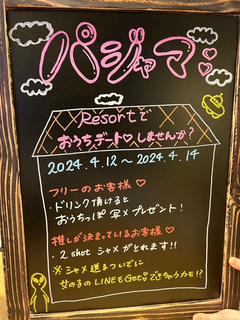 パジャマ
Resortで
おうちデート♡しませんか?
2024.4.12～2024.4.14
フリーのお客様♡
・ドリンク頂けると
おうちっぽ写メプレゼント!
推しが決まっているお客様♡
・2 shot シャメがとれます!!
※シャメ送るついでに
女の子のLINEもGetできちゃうカモ!?